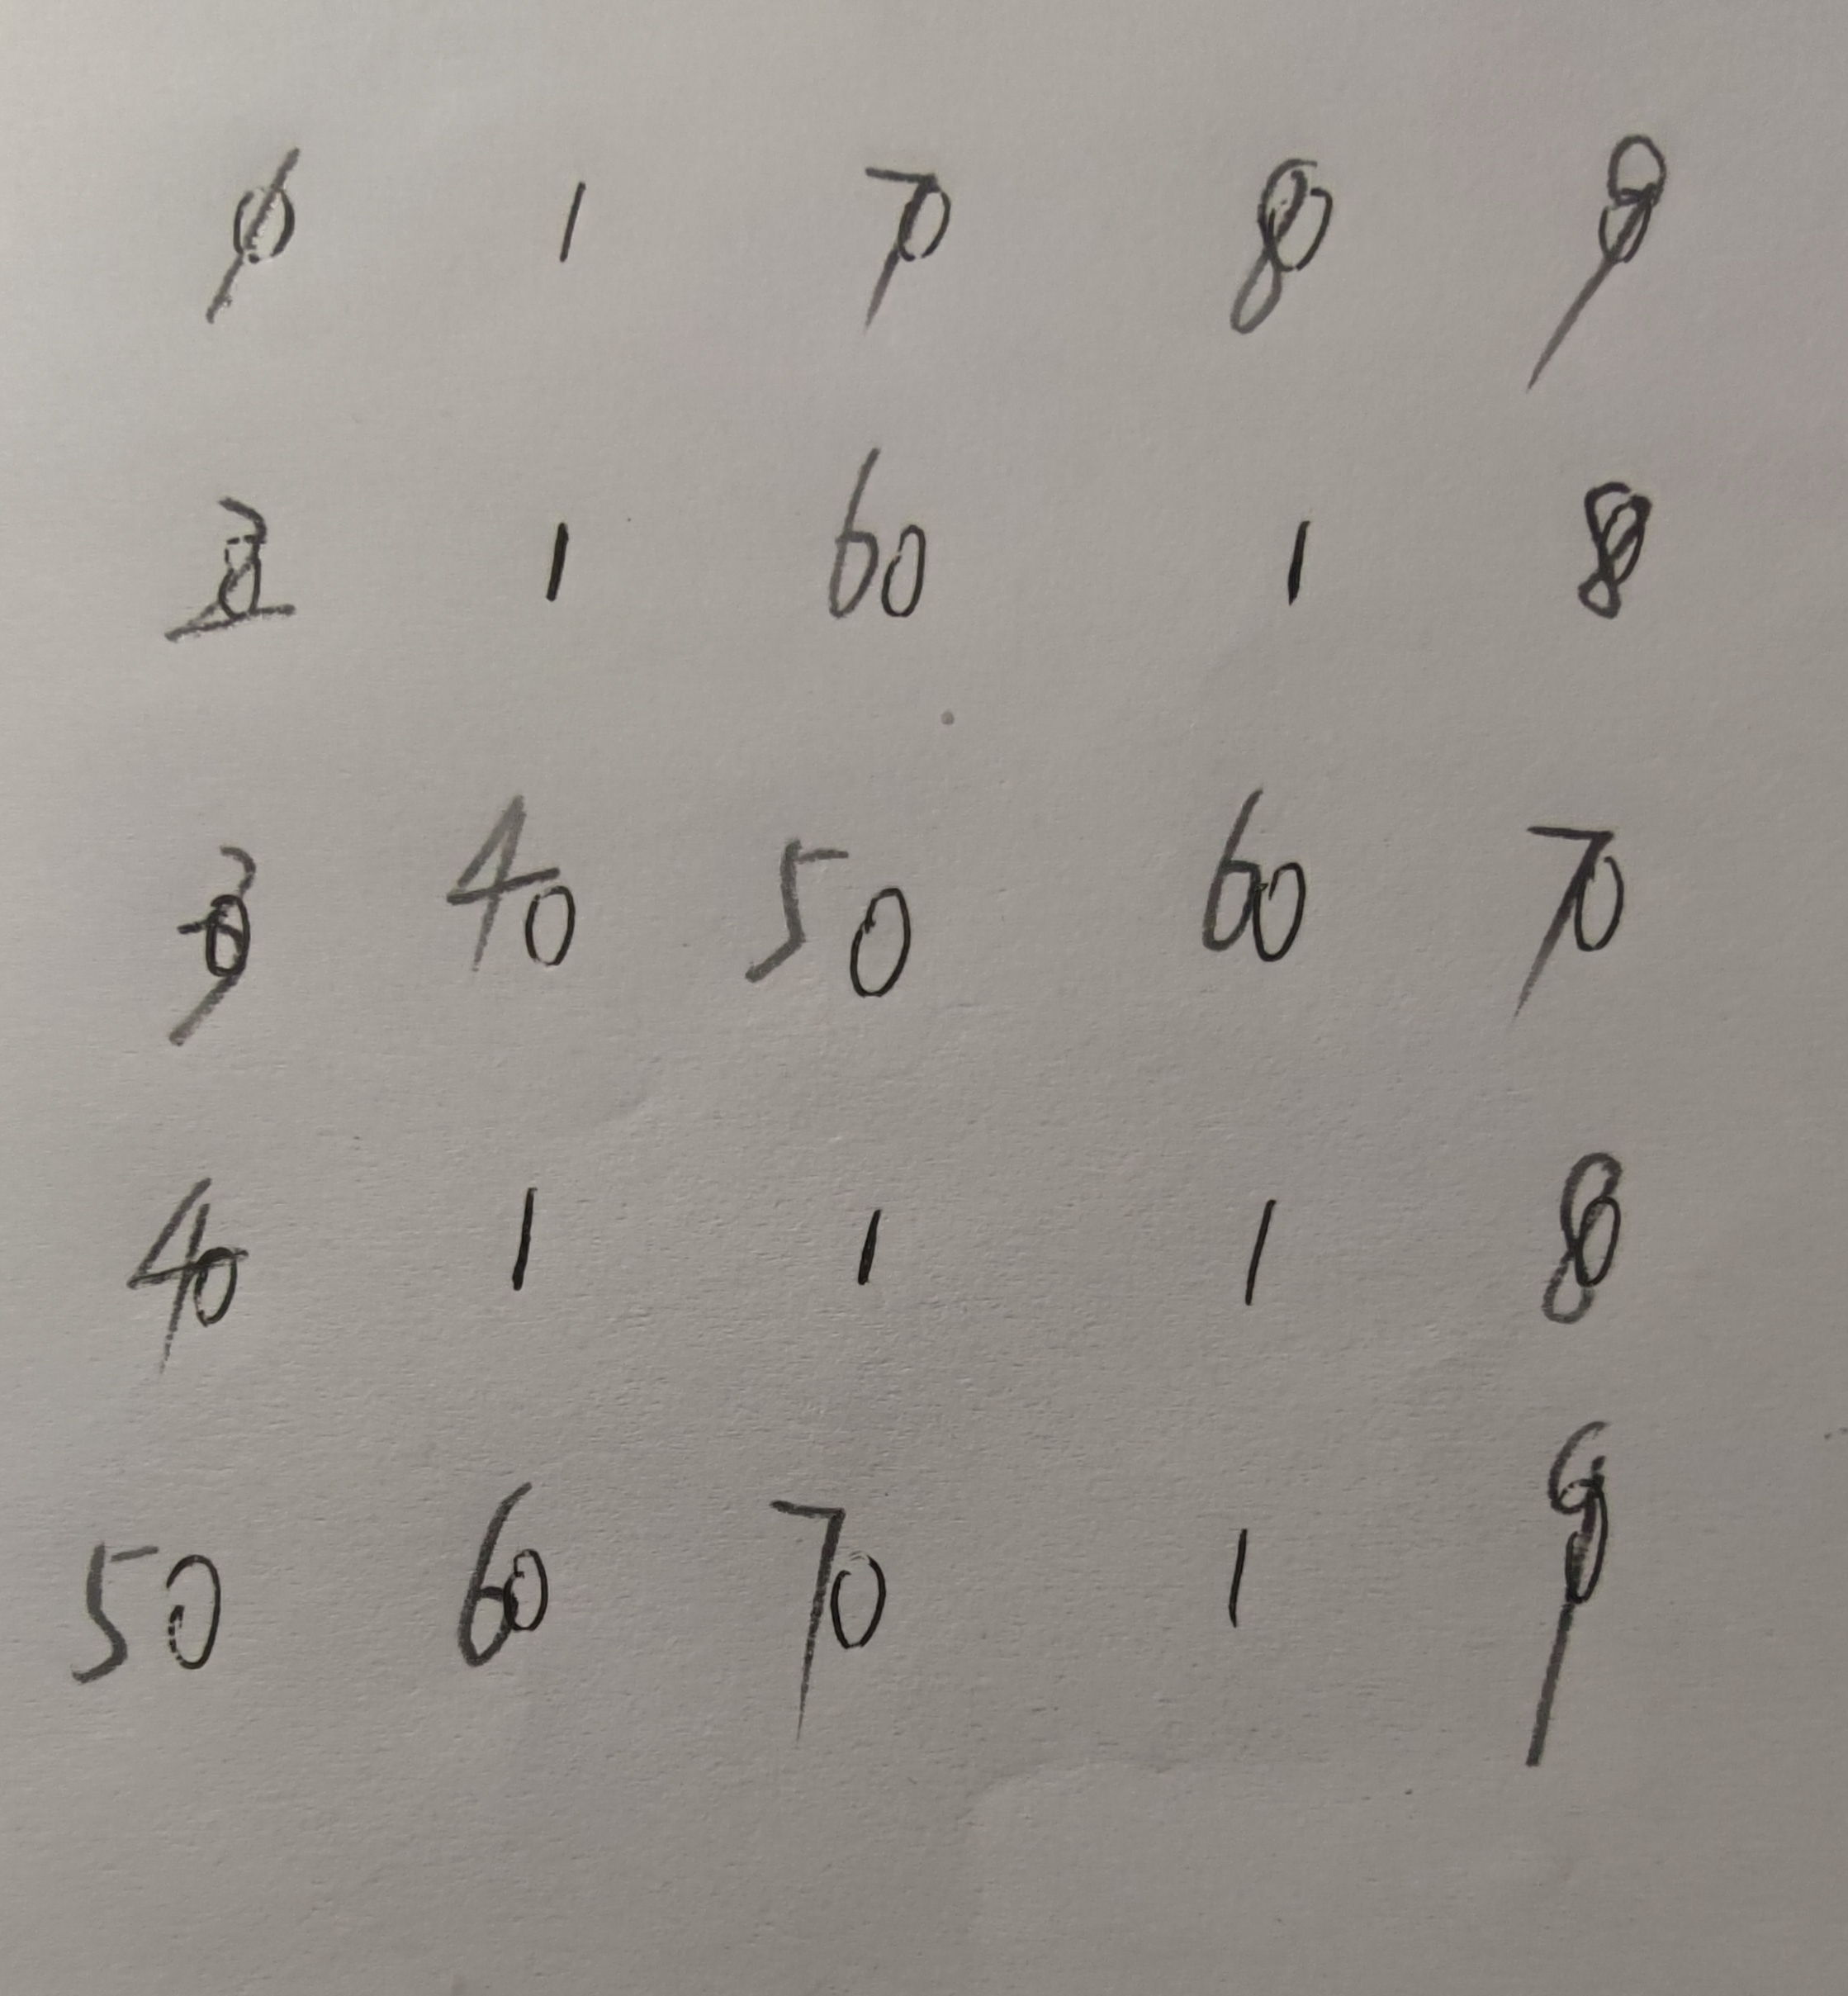 10 1 70 80 90
20 1 60 1 80
30 40 50 60 70
40 1 1 1 80
50 60 70 1 90